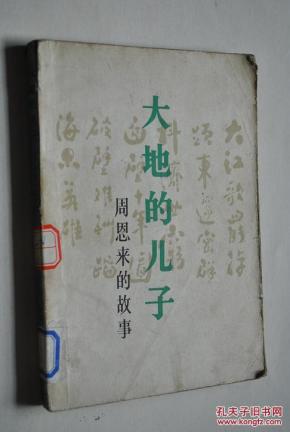 大地的儿子
周恩来的故事
大江歌罷掉
頭東邃密群
科濟世窮
面壁十年圖
破壁難酬蹈
海亦英雄
孔夫子旧书网
KONGFZ.COM